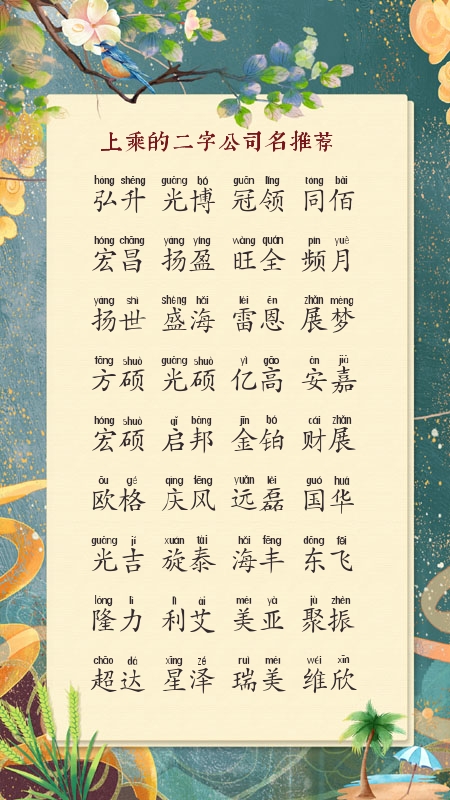 上乘的二字公司名推荐
hóng shēng guāng bó guān lǐng tóng bǎi
弘升 光博 冠领 同佰
hóng chāng yáng yíng wàng quán pín yuè
宏昌 扬盈 旺全 频月
yáng shì shèng hǎi léi ēn zhǎn mèng
扬世 盛海 雷恩 展梦
fāng shuò guāng shuò yì gāo ān jiā
方硕 光硕 亿高 安嘉
hóng shuò qǐ bāng jīn bó cái zhǎn
宏硕 启邦 金铂 财展
ōu gé qìng fēng yuǎn lěi guó huá
欧格 庆风 远磊 国华
guāng jí xuán tài hǎi fēng dōng fēi
光吉 旋泰 海丰 东飞
lóng lì lì ài měi yà jù zhèn
隆力 利艾 美亚 聚振
chāo dá xīng zé ruì měi wéi xīn
超达 星泽 瑞美 维欣